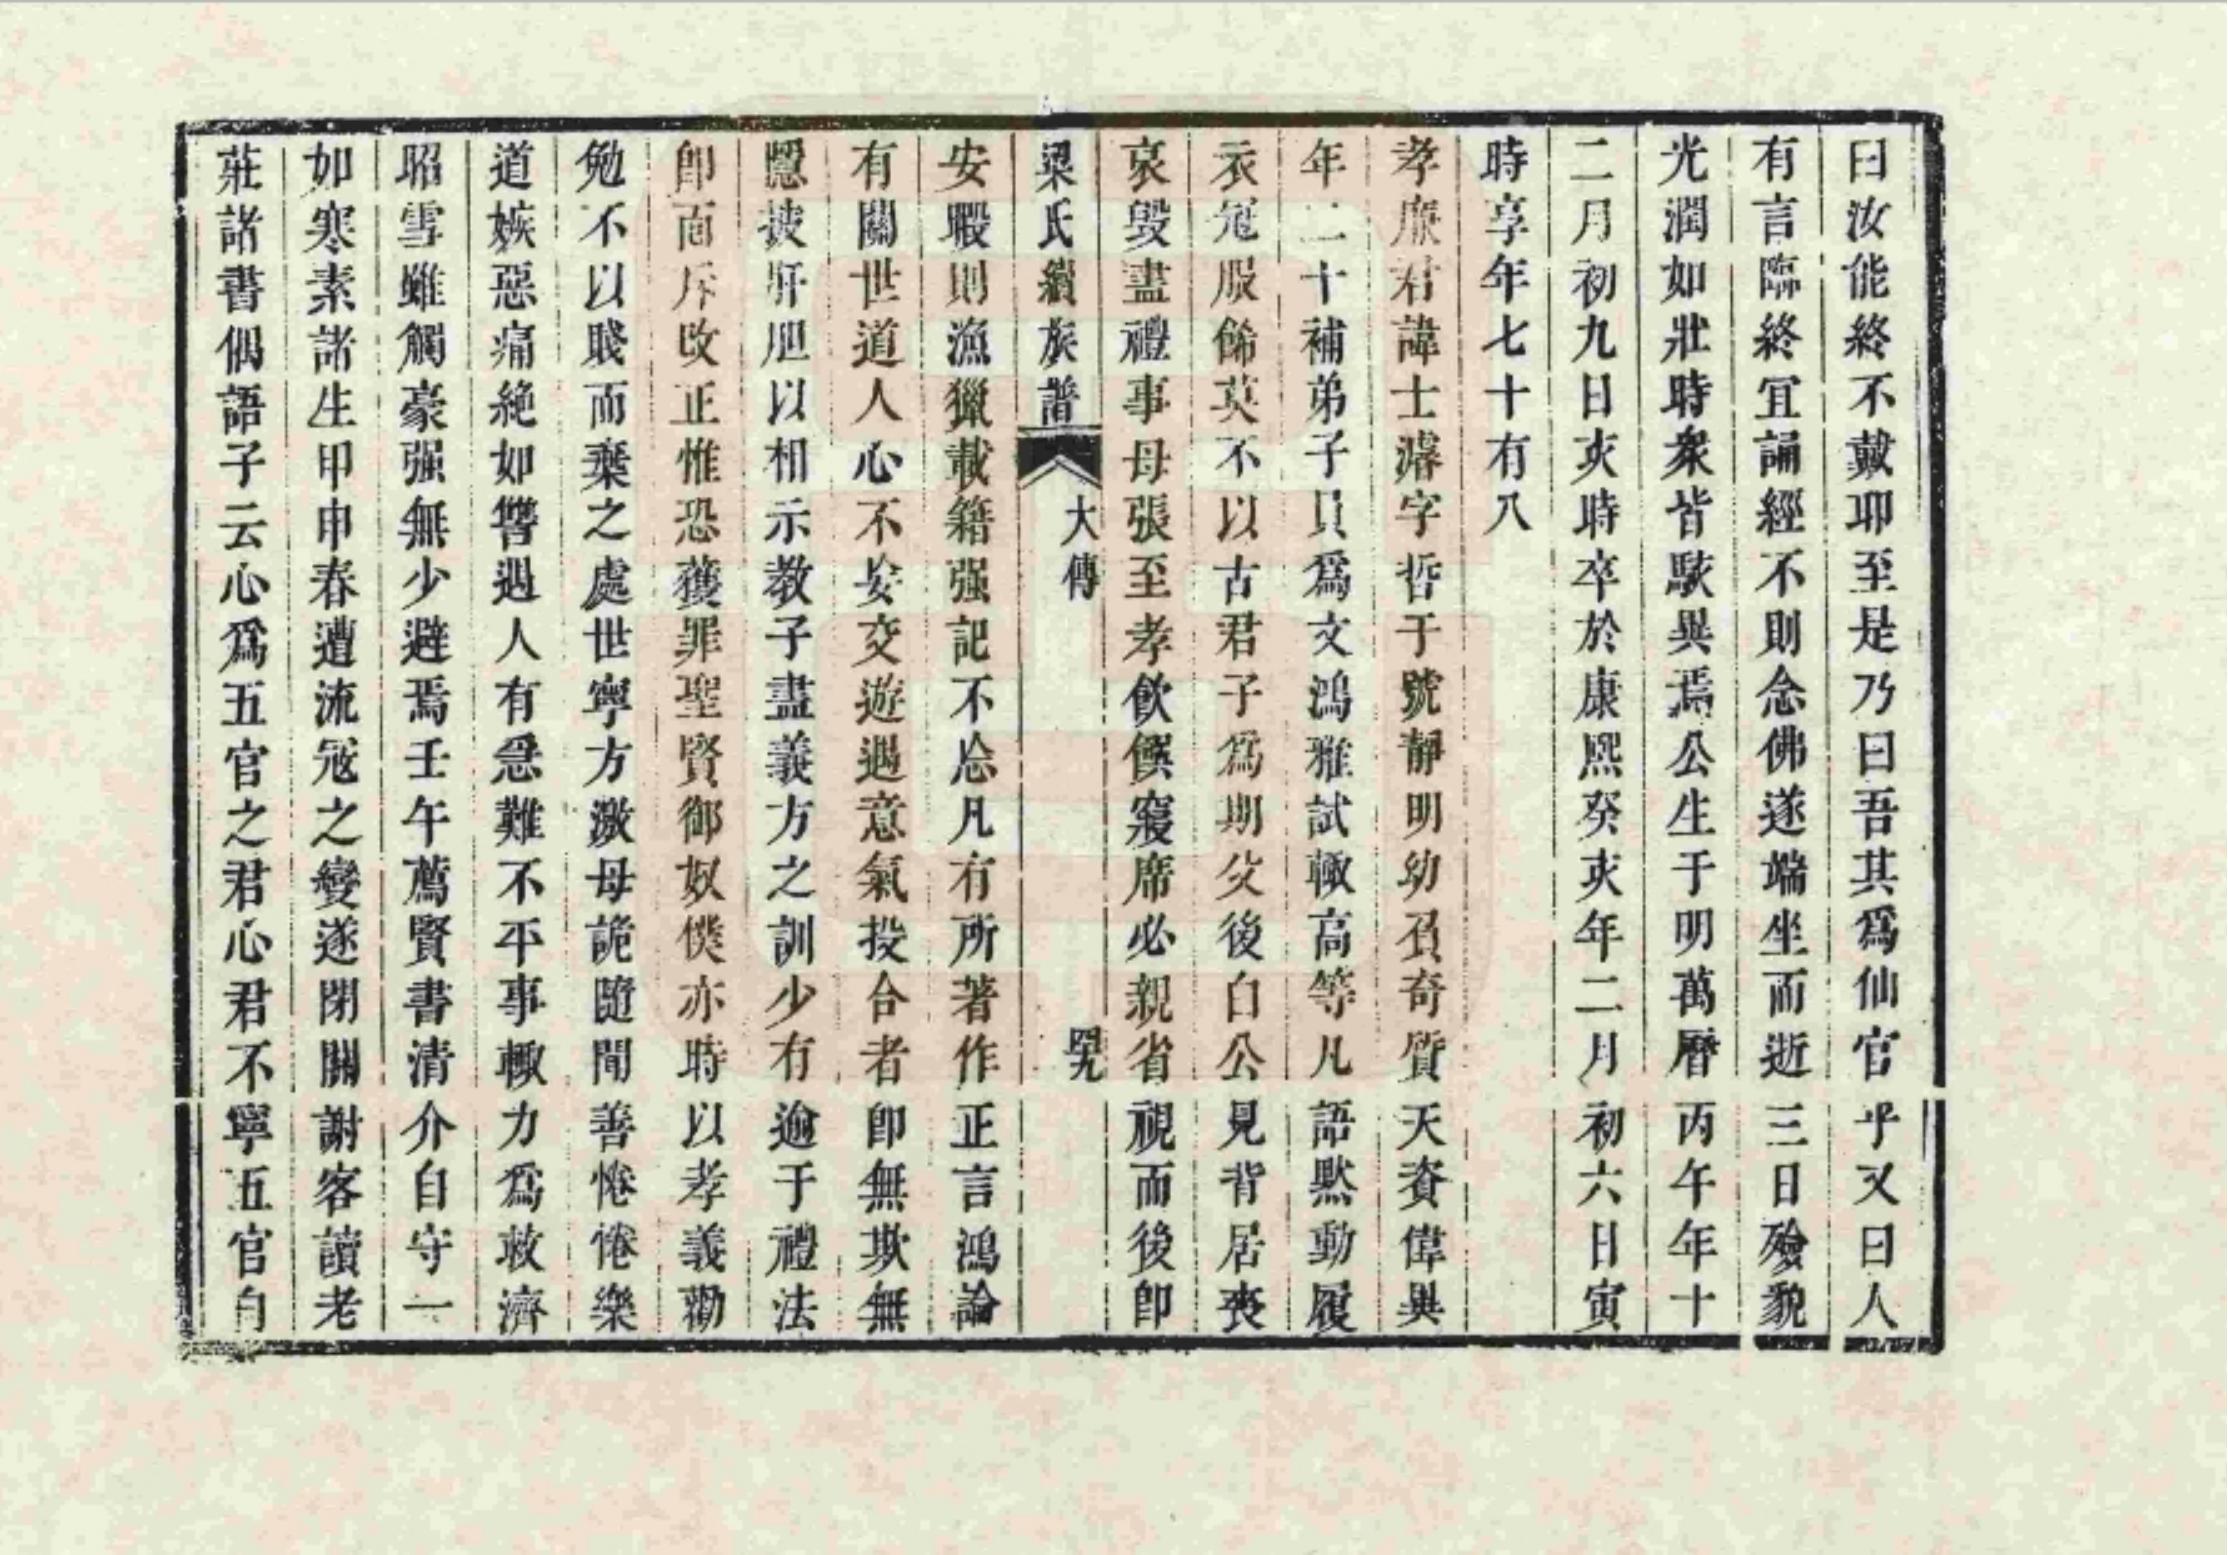 曰汝能終不戴耶至是乃曰吾其爲仙官乎又曰人
有言臨終宜誦經不則念佛遂端坐而逝三日殮貌
光潤如壯時衆皆駭異焉公生于明萬曆丙午年十
二月初九日亥時卒於康熙癸亥年二月初六日寅
時享年七十有八
孝廉君諱士濬字哲于號靜明幼負奇質天資偉異
年二十補弟子員爲文鴻雅試輙高等凡語默動履
衣冠服餙莫不以古君子爲期父後白公見背居喪
哀毀盡禮事母張至孝飲饌寢席必親省視而後卽
梁氏續族譜
大傳
四九
安暇則漁獵載籍强記不忘凡有所著作正言鴻論
有關世道人心不妄交遊遇意氣投合者卽無欺無
隱披肝胆以相示教子盡義方之訓少有逾于禮法
卽面斥改正惟恐獲罪聖賢御奴僕亦時以孝義勸
勉不以賤而棄之處世寧方激毋詭隨聞善惓惓樂
道嫉惡痛絶如讐遇人有急難不平事輙力爲救濟
昭雪雖觸豪强無少避焉壬午薦賢書清介自守一
如寒素諸生甲申春遭流冦之變遂閉關謝客讀老
莊諸書偶語子云心爲五官之君心君不寧五官自